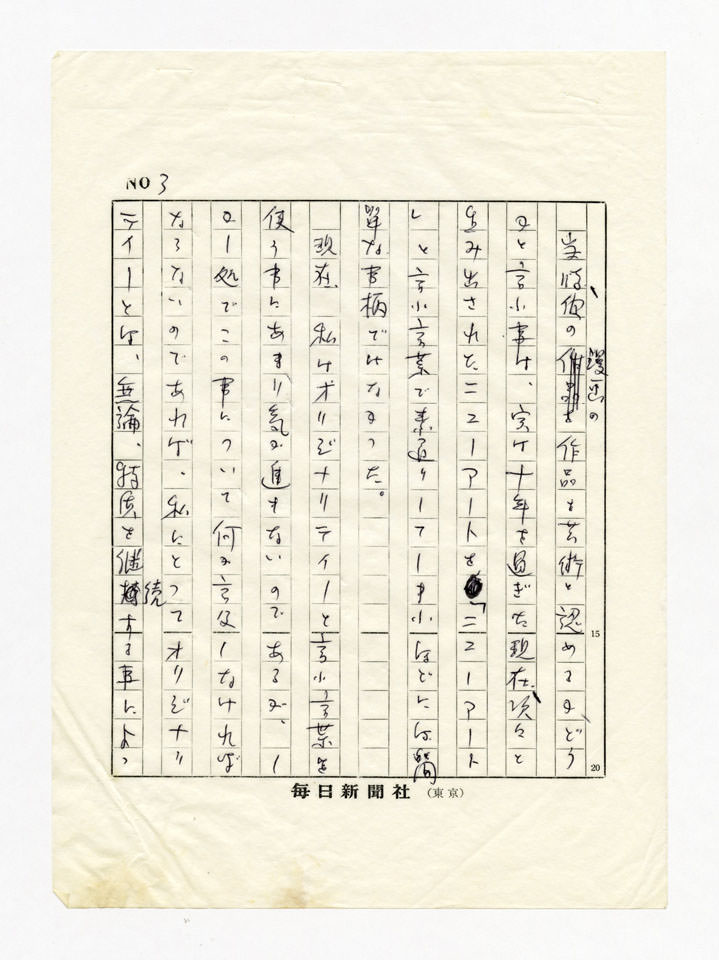 NO 3
当時彼の作品を芸術と認めるかどう
かと言う事は、実は十年を過ぎた現在、次々と
生み出されたニューアートを「ニューアート
」と言う言葉で素通りしてしまうほどには簡
単な事柄ではなかった。
現在、私はオリジナリティーと言う言葉を
使う事にあまり気が進まないのであるが、し
かし処でこの事について何か言及しなければ
ならないのであれば、私にとってオリジナリ
ティーとは、無論、特質を継続する事によっ
15
20
毎日新聞社（東京）